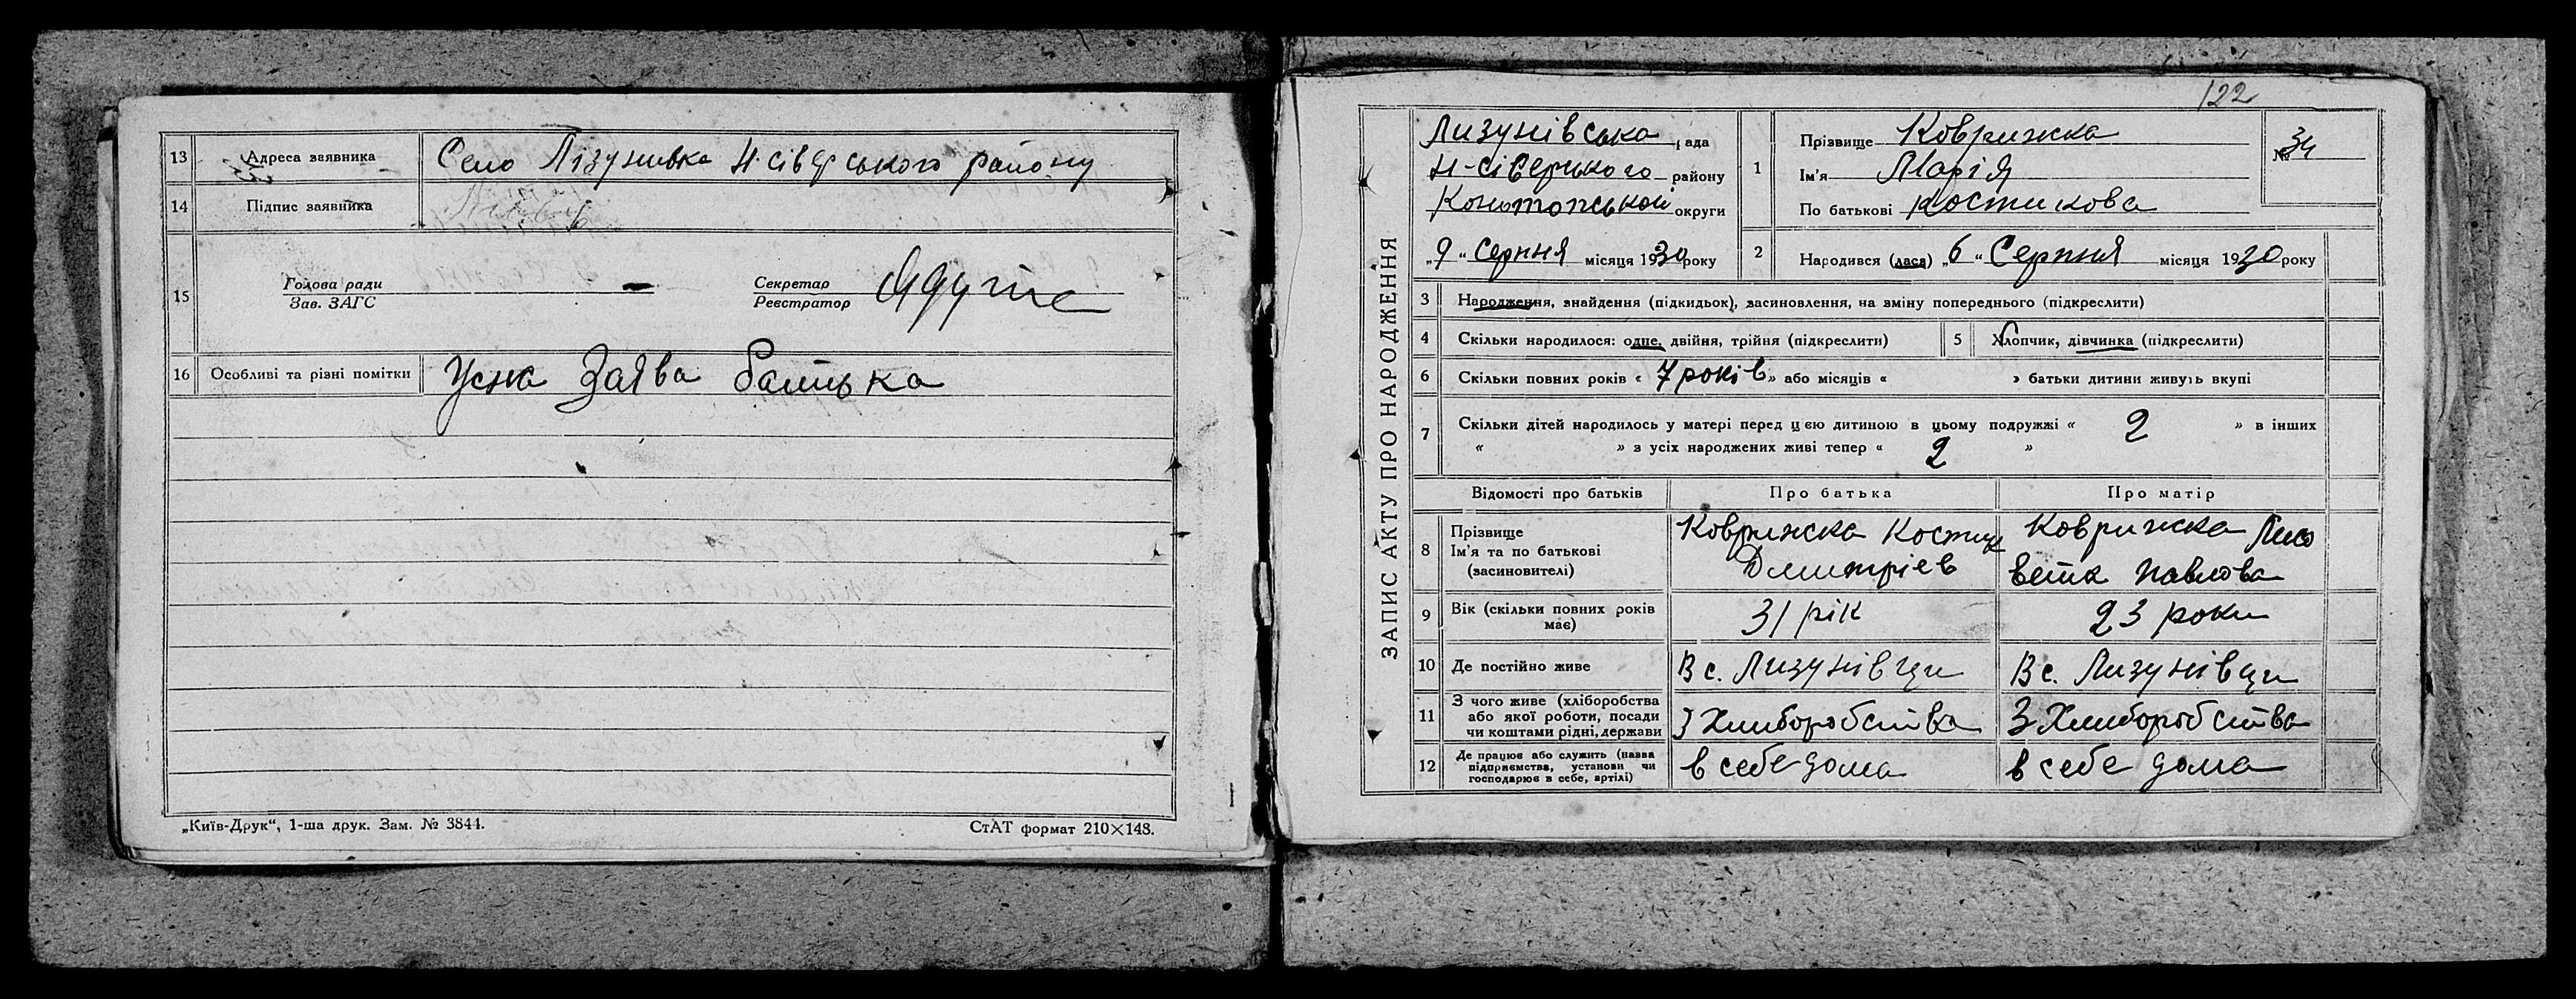 13 Адреса заявника Село Лізунивка Н. сівер ського району
14 Підпис заявника
15 Голова ради Зав. ЗАГС — Секретар Реєстратор
16 Особливі та різні помітки Усна Заява батька
„Київ-Друк“, 1-ша друк. Зам. № 3844. СтАТ формат 210×148.
122
ЗАПИС АКТУ ПРО НАРОДЖЕННЯ
Лизунівська рада
Н-сіверського району
Конотопської округи
„9“ Серпня місяця 1930 року
1 Прізвище Коврижка
Ім'я Марія
По батькові Костикова
№ 34
2 Народився (лася) „6“ Серпня місяця 1930 року
3 Народження, знайдення (підкидьок), засиновлення, на зміну попереднього (підкреслити)
4 Скільки народилося: одне, двійня, трійня (підкреслити)
5 Хлопчик, дівчинка (підкреслити)
6 Скільки повних років « 7 років » або місяців « » батьки дитини живуть вкупі
7 Скільки дітей народилось у матері перед цією дитиною в цьому подружжі « 2 » в інших
« » з усіх народжених живі тепер « 2 »
Відомості про батьків Про батька Про матір
8 Прізвище Ім'я та по батькові (засиновителі) Коврижка Костик Дмитріев Коврижка Лизо вета Павлова
9 Вік (скільки повних років має) 31 рік 23 роки
10 Де постійно живе В с. Лизунівци В с. Лизунівци
11 З чого живе (хліборобства або якої роботи, посади чи коштами рідні, держави З Хлиборобства З Хлиборобства
12 Де працює або служить (назва підприємства, установи чи господарює в себе, артілі) в себе дома в себе дома